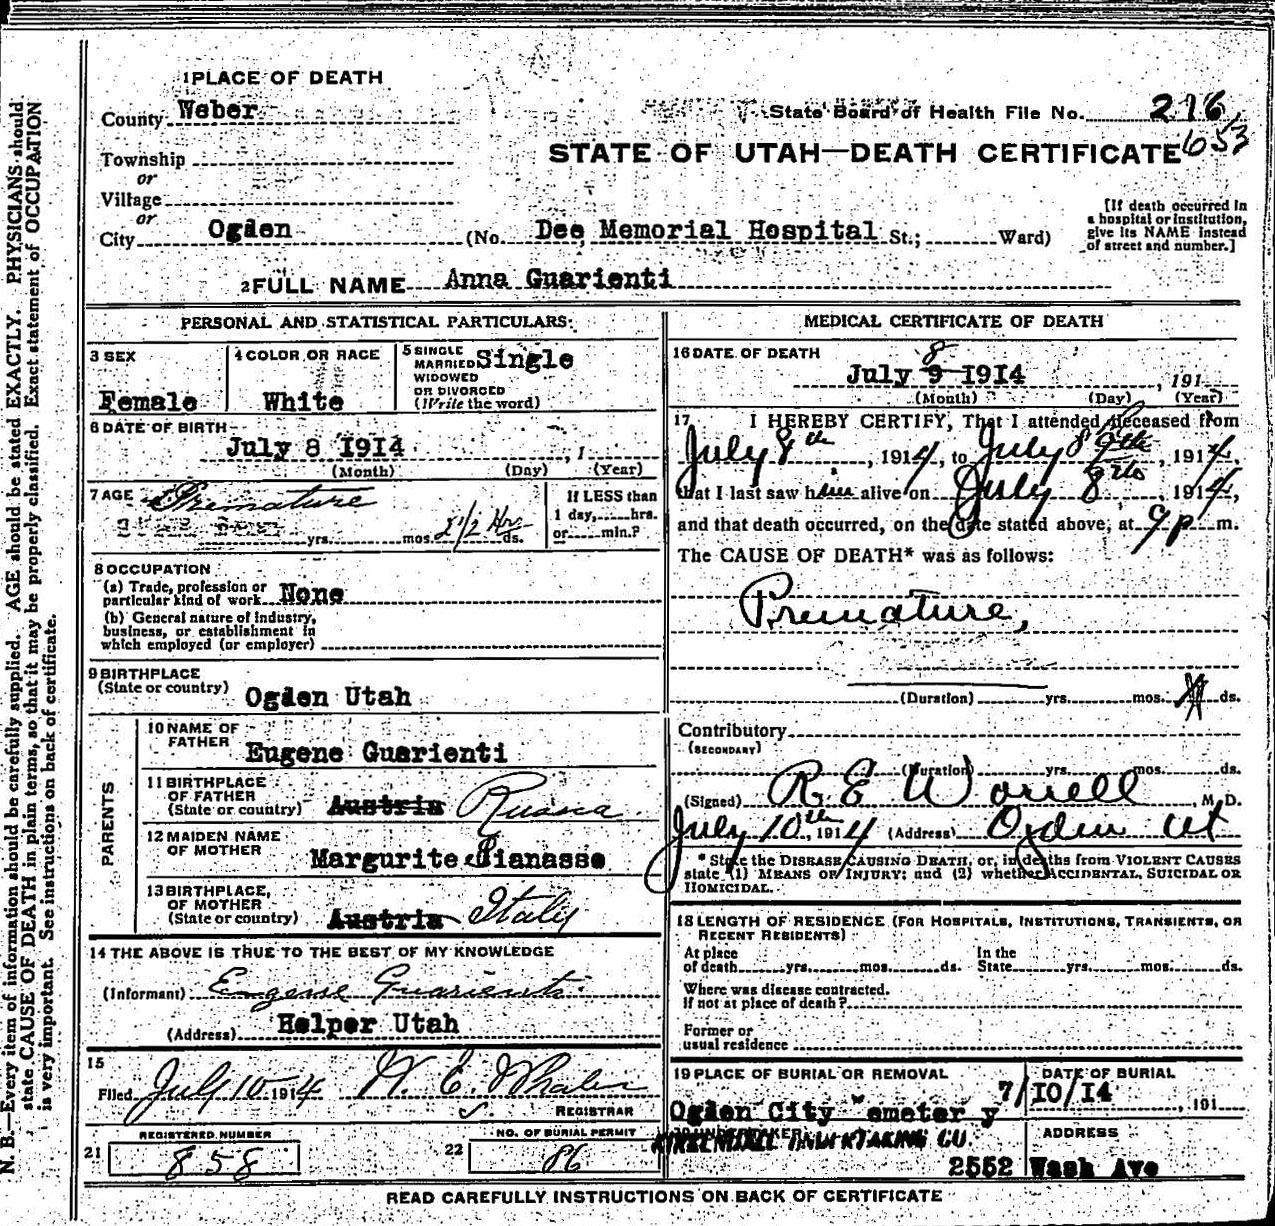 1 PLACE OF DEATH
County Weber
State Board of Health File No. 216
653
Township
or
STATE OF UTAH—DEATH CERTIFICATE
Village
or
City Ogden (No. Dee Memorial Hospital St.; Ward)
[If death occurred in
a hospital or institution,
give its NAME instead
of street and number.]
2 FULL NAME Anna Guarienti
PERSONAL AND STATISTICAL PARTICULARS
3 SEX
Female
4 COLOR OR RACE
White
5 SINGLE
MARRIED
WIDOWED
OR DIVORCED
(Write the word)
Single
6 DATE OF BIRTH
July 8 1914 , 1
(Month) (Day) (Year)
7 AGE Premature
yrs. mos. 2 1/2 Hrs ds.
If LESS than
1 day, hrs.
or min.?
8 OCCUPATION
(a) Trade, profession or
particular kind of work None
(b) General nature of industry,
business, or establishment in
which employed (or employer)
9 BIRTHPLACE
(State or country) Ogden Utah
PARENTS
10 NAME OF
FATHER Eugene Guarienti
11 BIRTHPLACE
OF FATHER
(State or country) Austria Russia
12 MAIDEN NAME
OF MOTHER
Margurite Sianasse
13 BIRTHPLACE,
OF MOTHER
(State or country) Austria Italy
14 THE ABOVE IS TRUE TO THE BEST OF MY KNOWLEDGE
(Informant) Eugene Guarienti
(Address) Helper Utah
15
Filed July 10 1914 W. E. Whalen
REGISTRAR
REGISTERED NUMBER
21 858
NO. OF BURIAL PERMIT
22 86
MEDICAL CERTIFICATE OF DEATH
16 DATE OF DEATH
8
July 9 1914 , 191
(Month) (Day) (Year)
17 I HEREBY CERTIFY, That I attended deceased from
July 8th , 1914, to July 8 9th , 1914,
that I last saw him alive on July 8th , 1914,
and that death occurred, on the date stated above, at 9 p m.
The CAUSE OF DEATH* was as follows:
Premature,
(Duration) yrs. mos. ds.
Contributory
(SECONDARY)
(Duration) yrs. mos. ds.
(Signed) R. E. Worrell , M. D.
July 10th, 1914 (Address) Ogden Ut
* State the DISEASE CAUSING DEATH, or, in deaths from VIOLENT CAUSES
state (1) MEANS OF INJURY; and (2) whether ACCIDENTAL, SUICIDAL OR
HOMICIDAL.
18 LENGTH OF RESIDENCE (FOR HOSPITALS, INSTITUTIONS, TRANSIENTS, OR
RECENT RESIDENTS)
At place
of death yrs. mos. ds.
In the
State yrs. mos. ds.
Where was disease contracted.
If not at place of death?
Former or
usual residence
19 PLACE OF BURIAL OR REMOVAL
Ogden City emetery
DATE OF BURIAL
7/10/14 , 191
KIRKENDALL UNDERTAKING CO.
ADDRESS
2552 Wash Ave
READ CAREFULLY INSTRUCTIONS ON BACK OF CERTIFICATE
N. B.—Every item of information should be carefully supplied. AGE should be stated EXACTLY. PHYSICIANS should
state CAUSE OF DEATH in plain terms, so that it may be properly classified. Exact statement of OCCUPATION
is very important. See instructions on back of certificate.